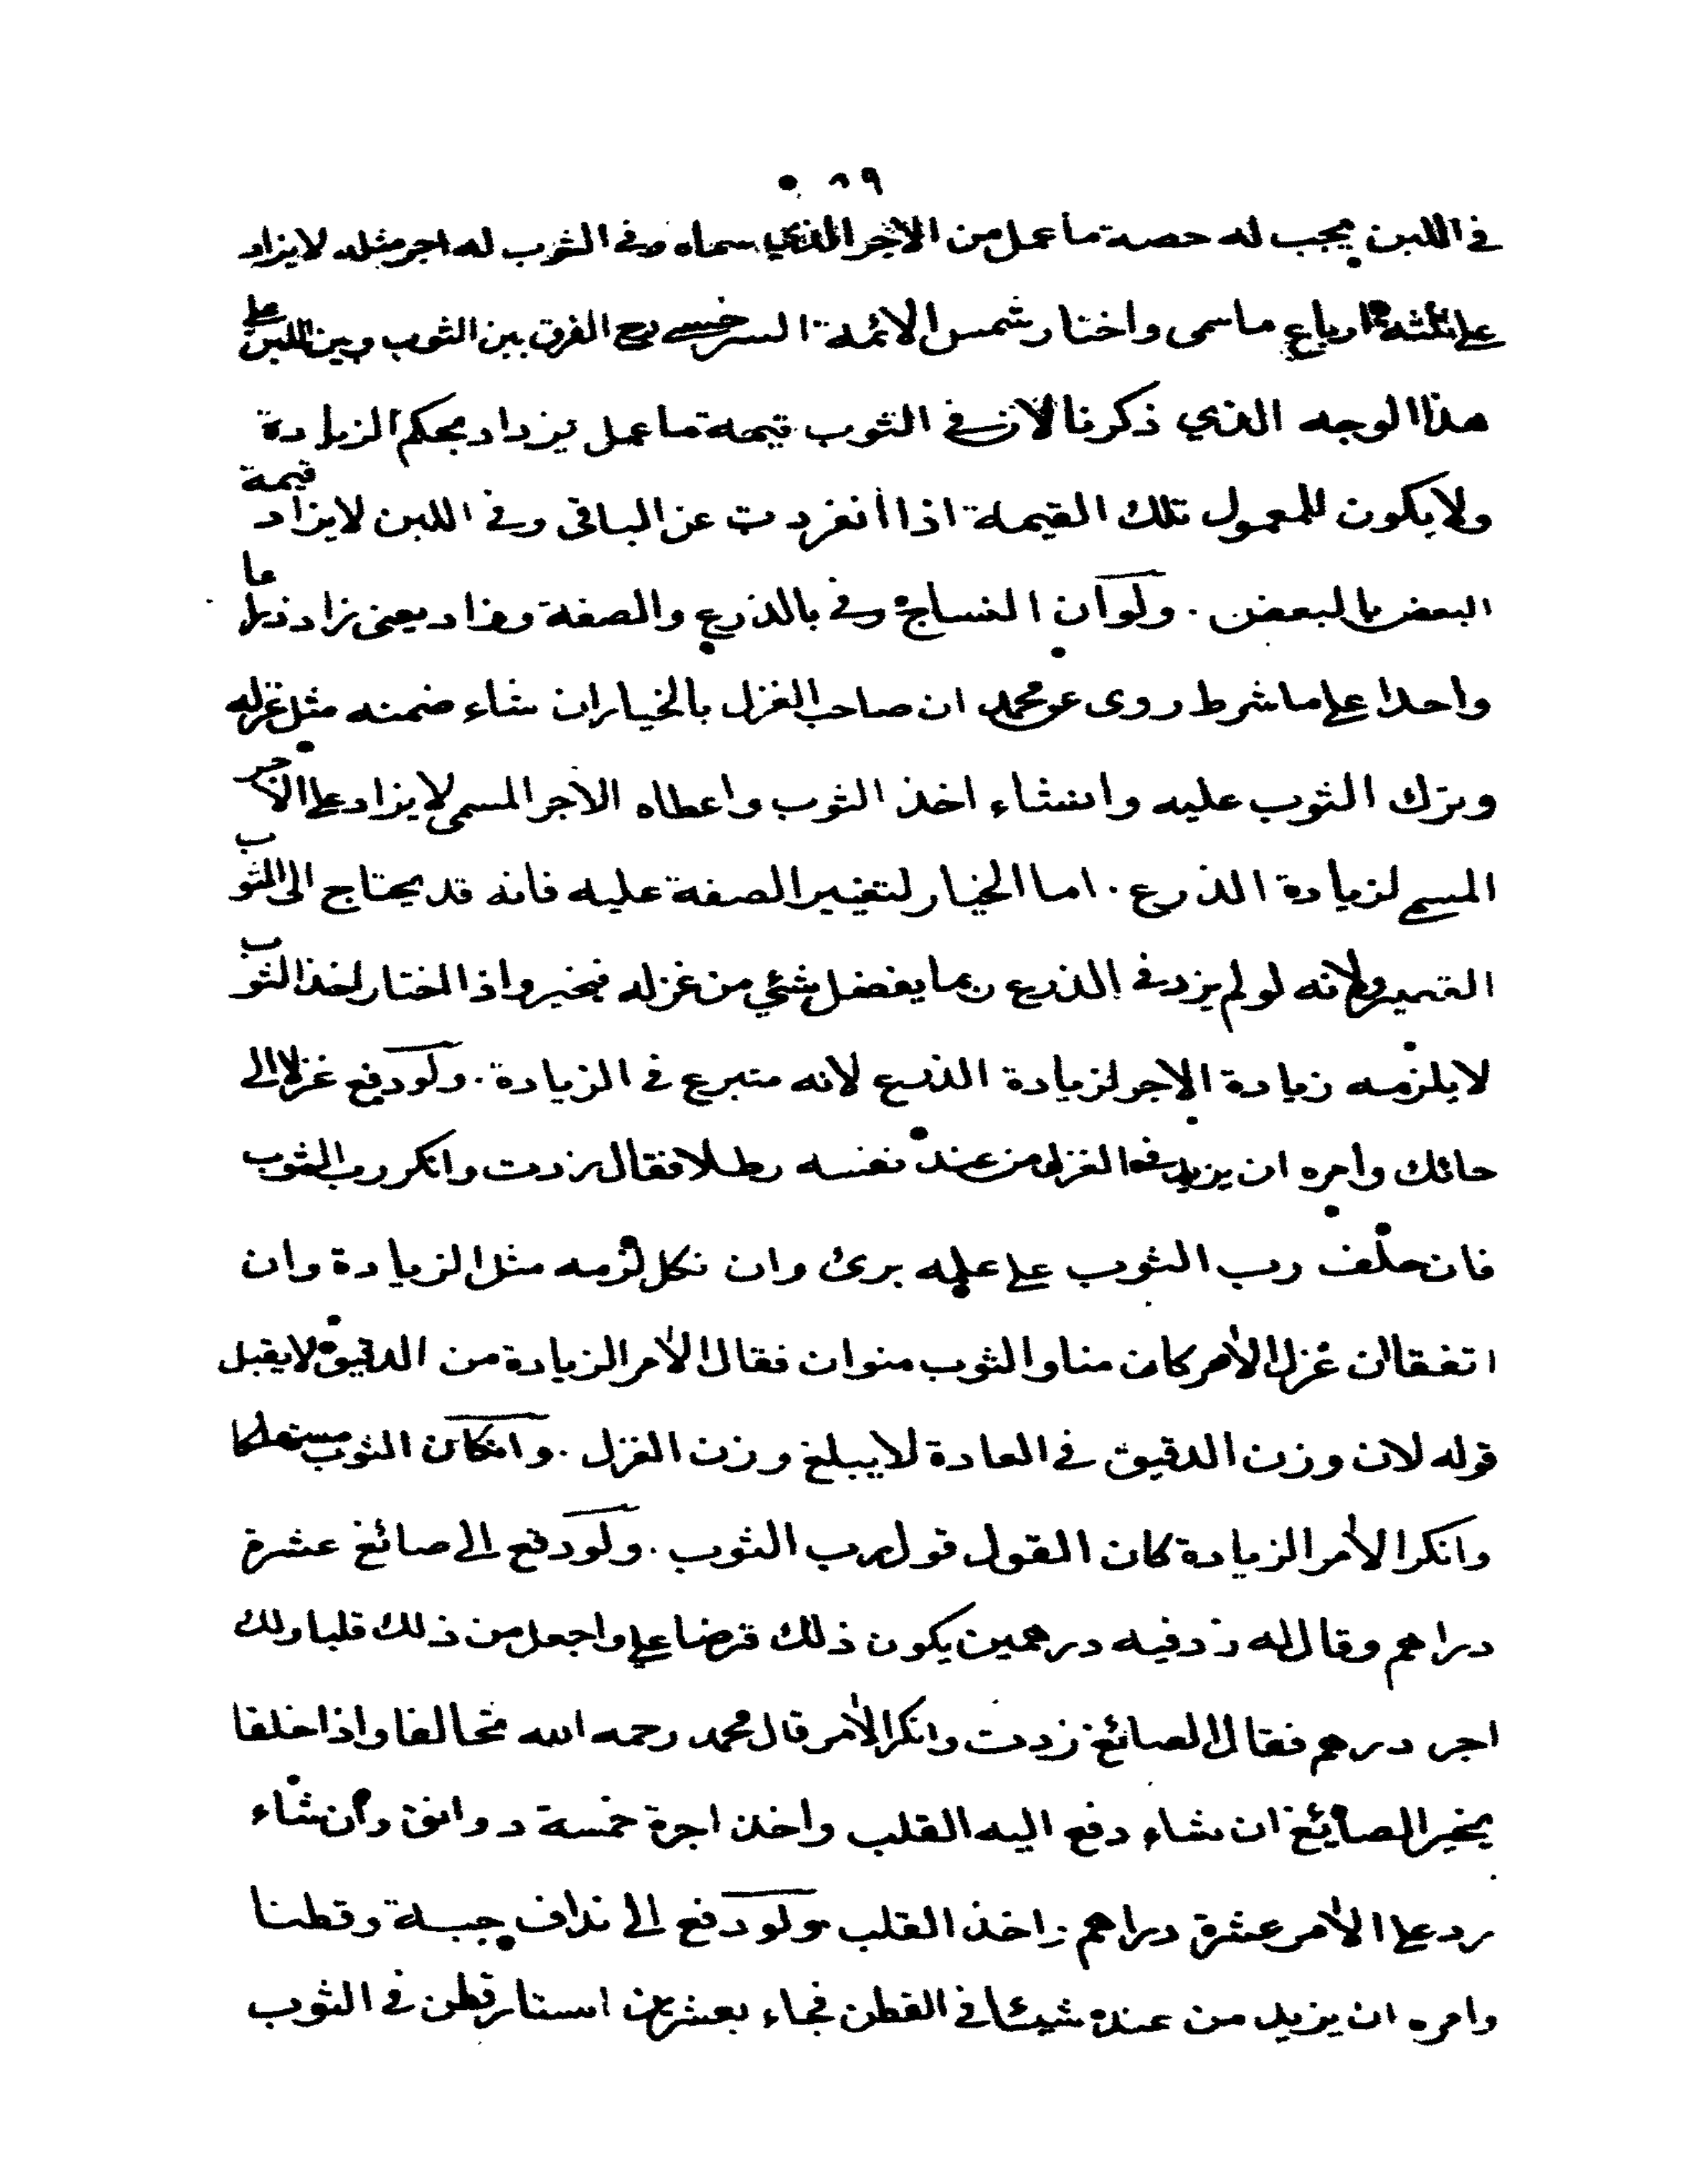 ٨٩
في اللبن يجب له حصة ما عمل من الاجر الذي سماه وفي الثوب له اجر مثله لا يزاد
على ثلثة ارباع ما سمى واختار شمس الائمة السرخسي رح الفرق بين الثوب وبين اللبن على
هذا الوجه الذي ذكرنا لان في الثوب قيمة ما عمل يزداد بحكم الزيادة
ولا يكون للمعمول تلك القيمة اذا انفردت عن الباقي وفي اللبن لا يزداد قيمة
البعض بالبعض . ولو ان النساج وفى بالذرع والصفة وزاد يعني زاد ذراعا
واحدا على ما شرط روى عن محمد ان صاحب الغزل بالخيار ان شاء ضمنه مثل غزله
وترك الثوب عليه وان شاء اخذ الثوب واعطاه الاجر المسمى لا يزاد على الاجر
المسمى لزيادة الذرع . اما الخيار لتغيير الصفة عليه فانه قد يحتاج الى الثوب
القصير ولانه لو لم يزد في الذرع ربما يفضل شئي من غزله فيخير واذا اختار اخذ الثوب
لا يلزمه زيادة الاجر لزيادة الذرع لانه متبرع في الزيادة . ولو دفع غزلا الى
حائك وامره ان يزيد في الغزل من عند نفسه رطلا فقال زدت وانكر رب الثوب
فان حلف رب الثوب على علمه برئ وان نكل لزمه مثل الزيادة وان
اتفقا ان غزل الآمر كان منا والثوب منوان فقال الآمر الزيادة من الدقيق لا يقبل
قوله لان وزن الدقيق في العادة لا يبلغ وزن الغزل . وان كان الثوب مستهلكا
وانكر الآمر الزيادة كان القول قول رب الثوب . ولو دفع الى صائغ عشرة
دراهم وقال له زد فيه درهمين يكون ذلك قرضا علي واجعل من ذلك قلبا ولك
اجر درهم فقال الصائغ زدت وانكر الآمر قال محمد رحمه الله تحالفا واذا حلفا
يخير الصائغ ان شاء دفع اليه القلب واخذ اجرة خمسة دوانق وان شاء
رد على الآمر عشرة دراهم واخذ القلب ولو دفع الى نداف جبة وقطنا
وامره ان يزيد من عنده شيئا في القطن فجاء بعشرين استار قطن في الثوب